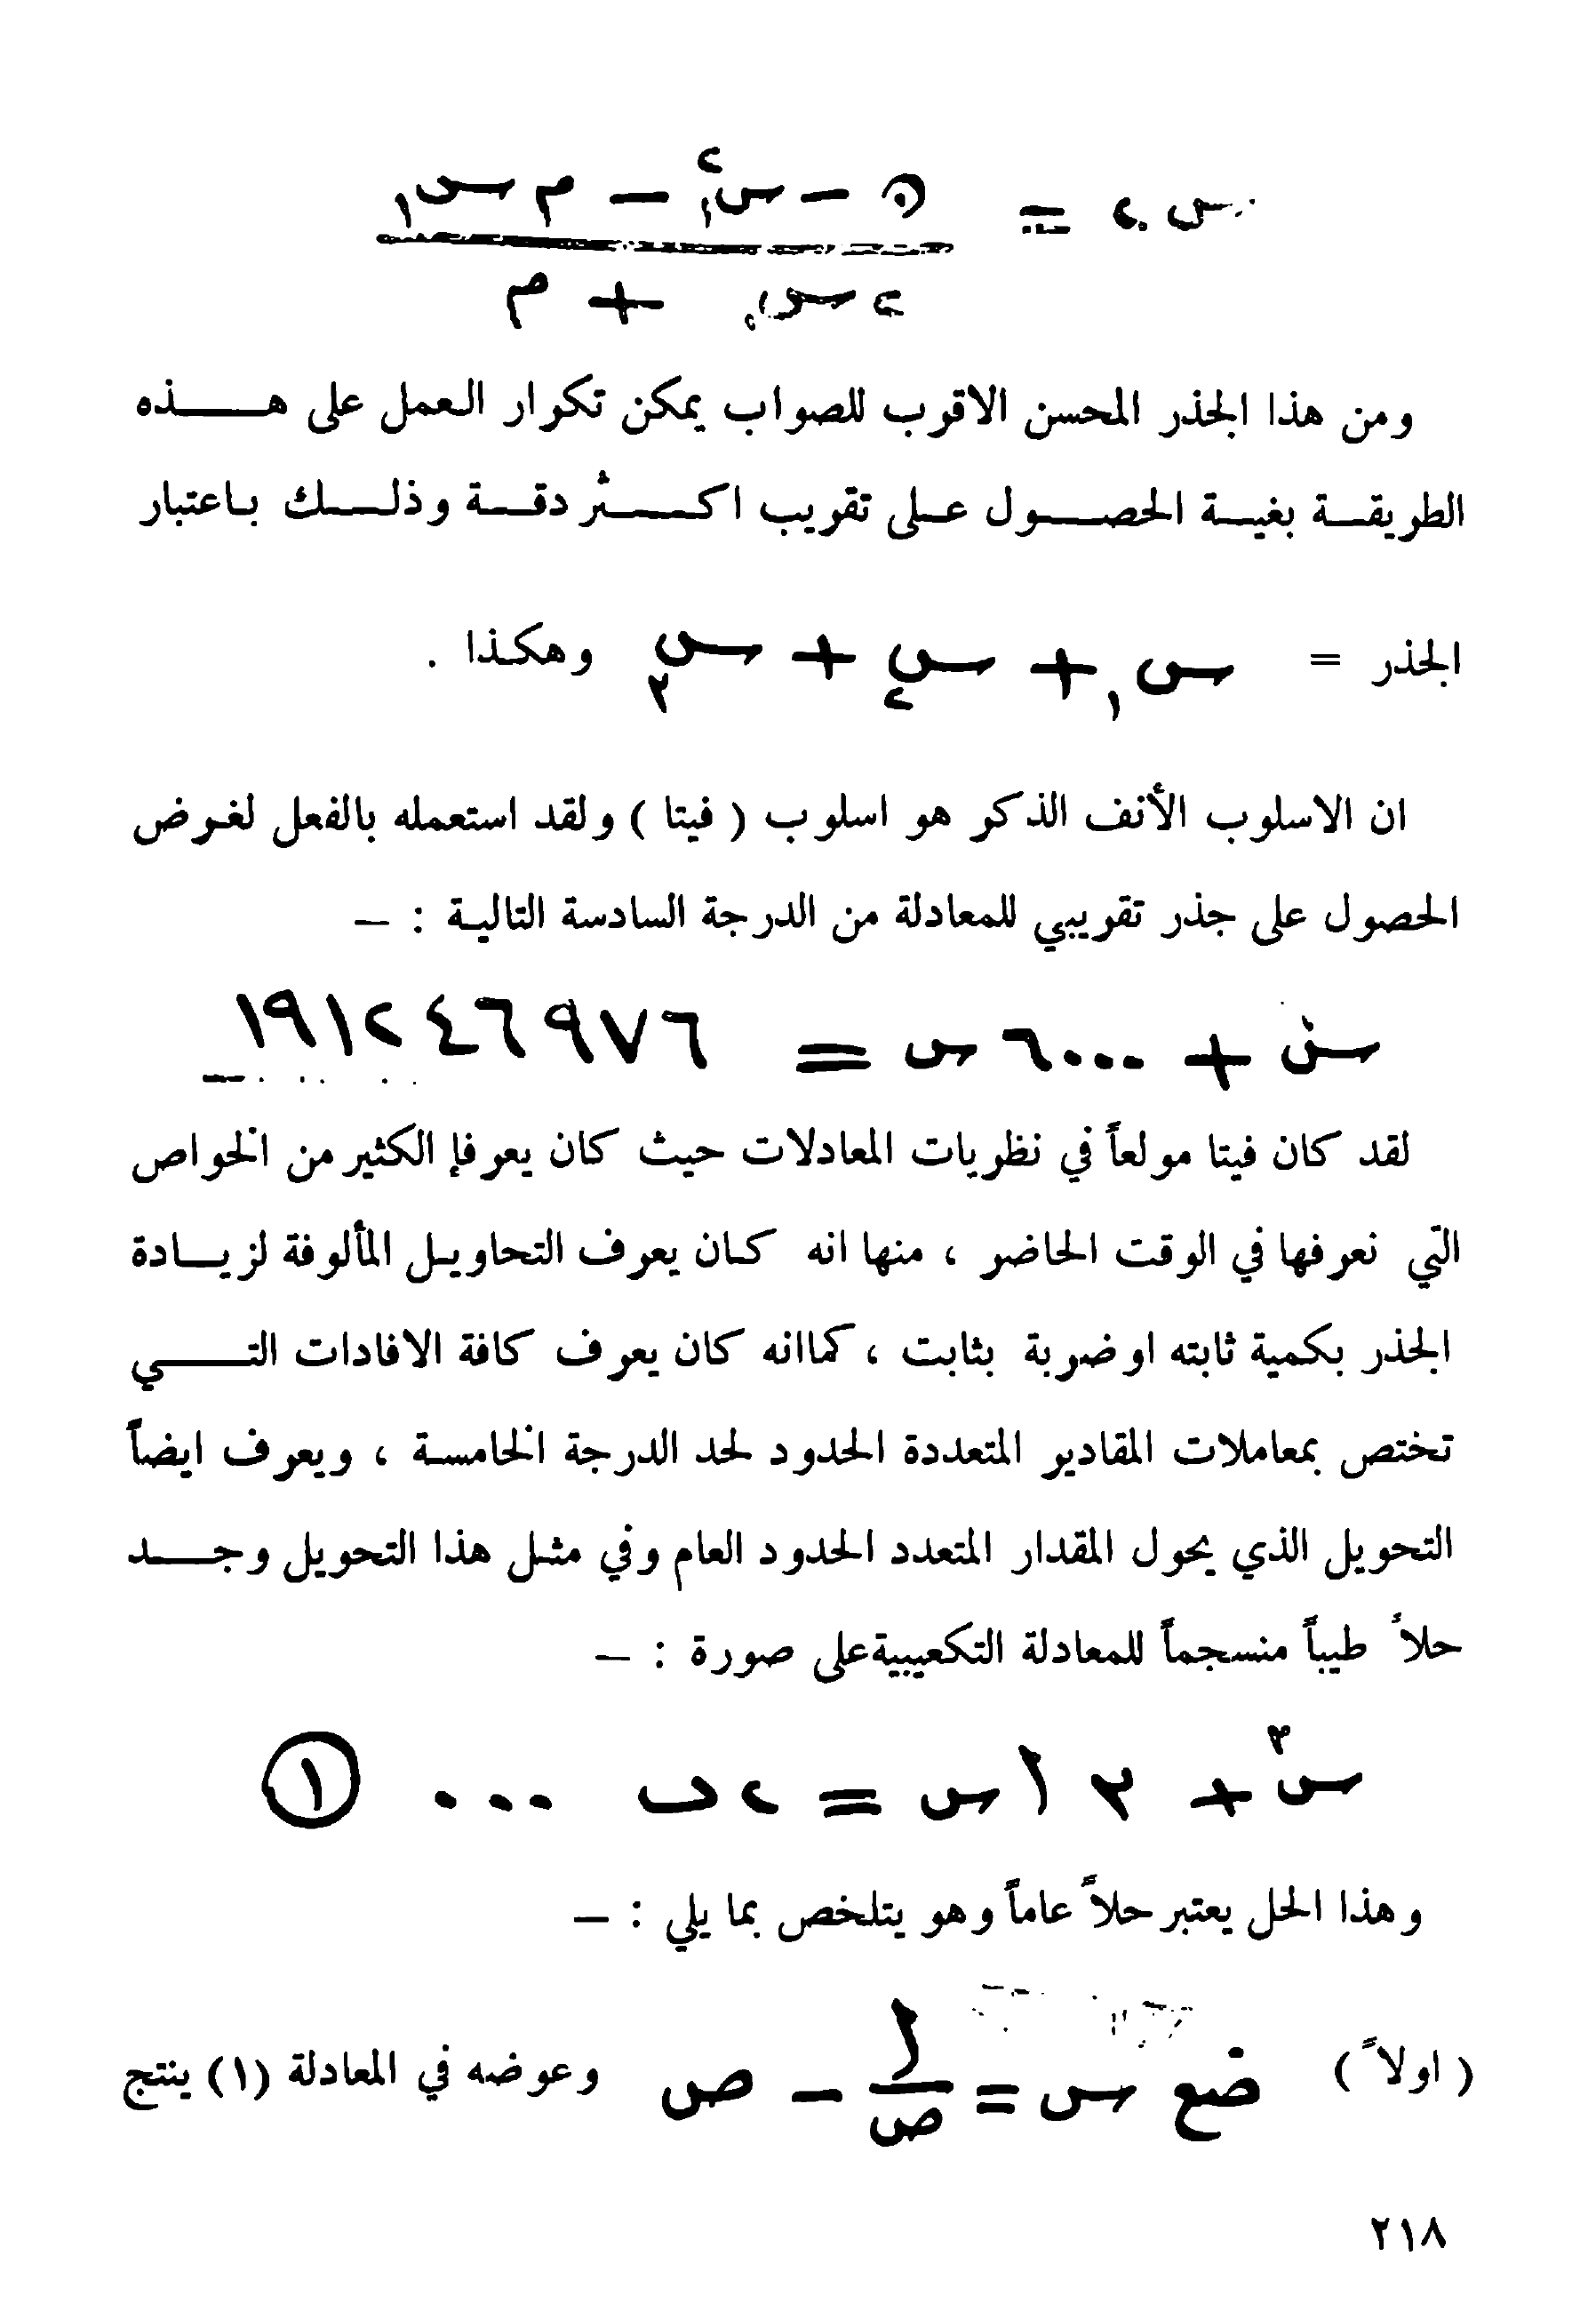 س٢ = (ن − س١² − م س١) / (٢ س١ + م)
ومن هذا الجذر المحسن الاقرب للصواب يمكن تكرار العمل على هـــذه
الطريقــة بغيــة الحصــول عــلى تقريب اكــثر دقــة وذلــك باعتبار
الجذر = س١ + س٢ + س٣ وهكذا .
ان الاسلوب الأنف الذكر هو اسلوب ( فيتا ) ولقد استعمله بالفعل لغرض
الحصول على جذر تقريبي للمعادلة من الدرجة السادسة التالية : —
س٦ + ٦٠٠٠ س = ١٩١٢٤٦٩٧٦
لقد كان فيتا مولعاً في نظريات المعادلات حيث كان يعرفإ الكثير من الخواص
التي نعرفها في الوقت الحاضر ، منها انه كان يعرف التحاويل المألوفة لزيــادة
الجذر بكمية ثابته او ضربة بثابت ، كماانه كان يعرف كافة الافادات التــــي
تختص بمعاملات المقادير المتعددة الحدود لحد الدرجة الخامسة ، ويعرف ايضاً
التحويل الذي يحول المقدار المتعدد الحدود العام وفي مثل هذا التحويل وجــد
حلاً طيباً منسجماً للمعادلة التكعيبيةعلى صورة : —
س³ + ٣ أ س = ٢ ب ... ①
وهذا الحل يعتبر حلاً عاماً وهو يتلخص بما يلي : —
( اولاً ) ضع س = أ/ص − ص وعوضه في المعادلة (١) ينتج
٢١٨